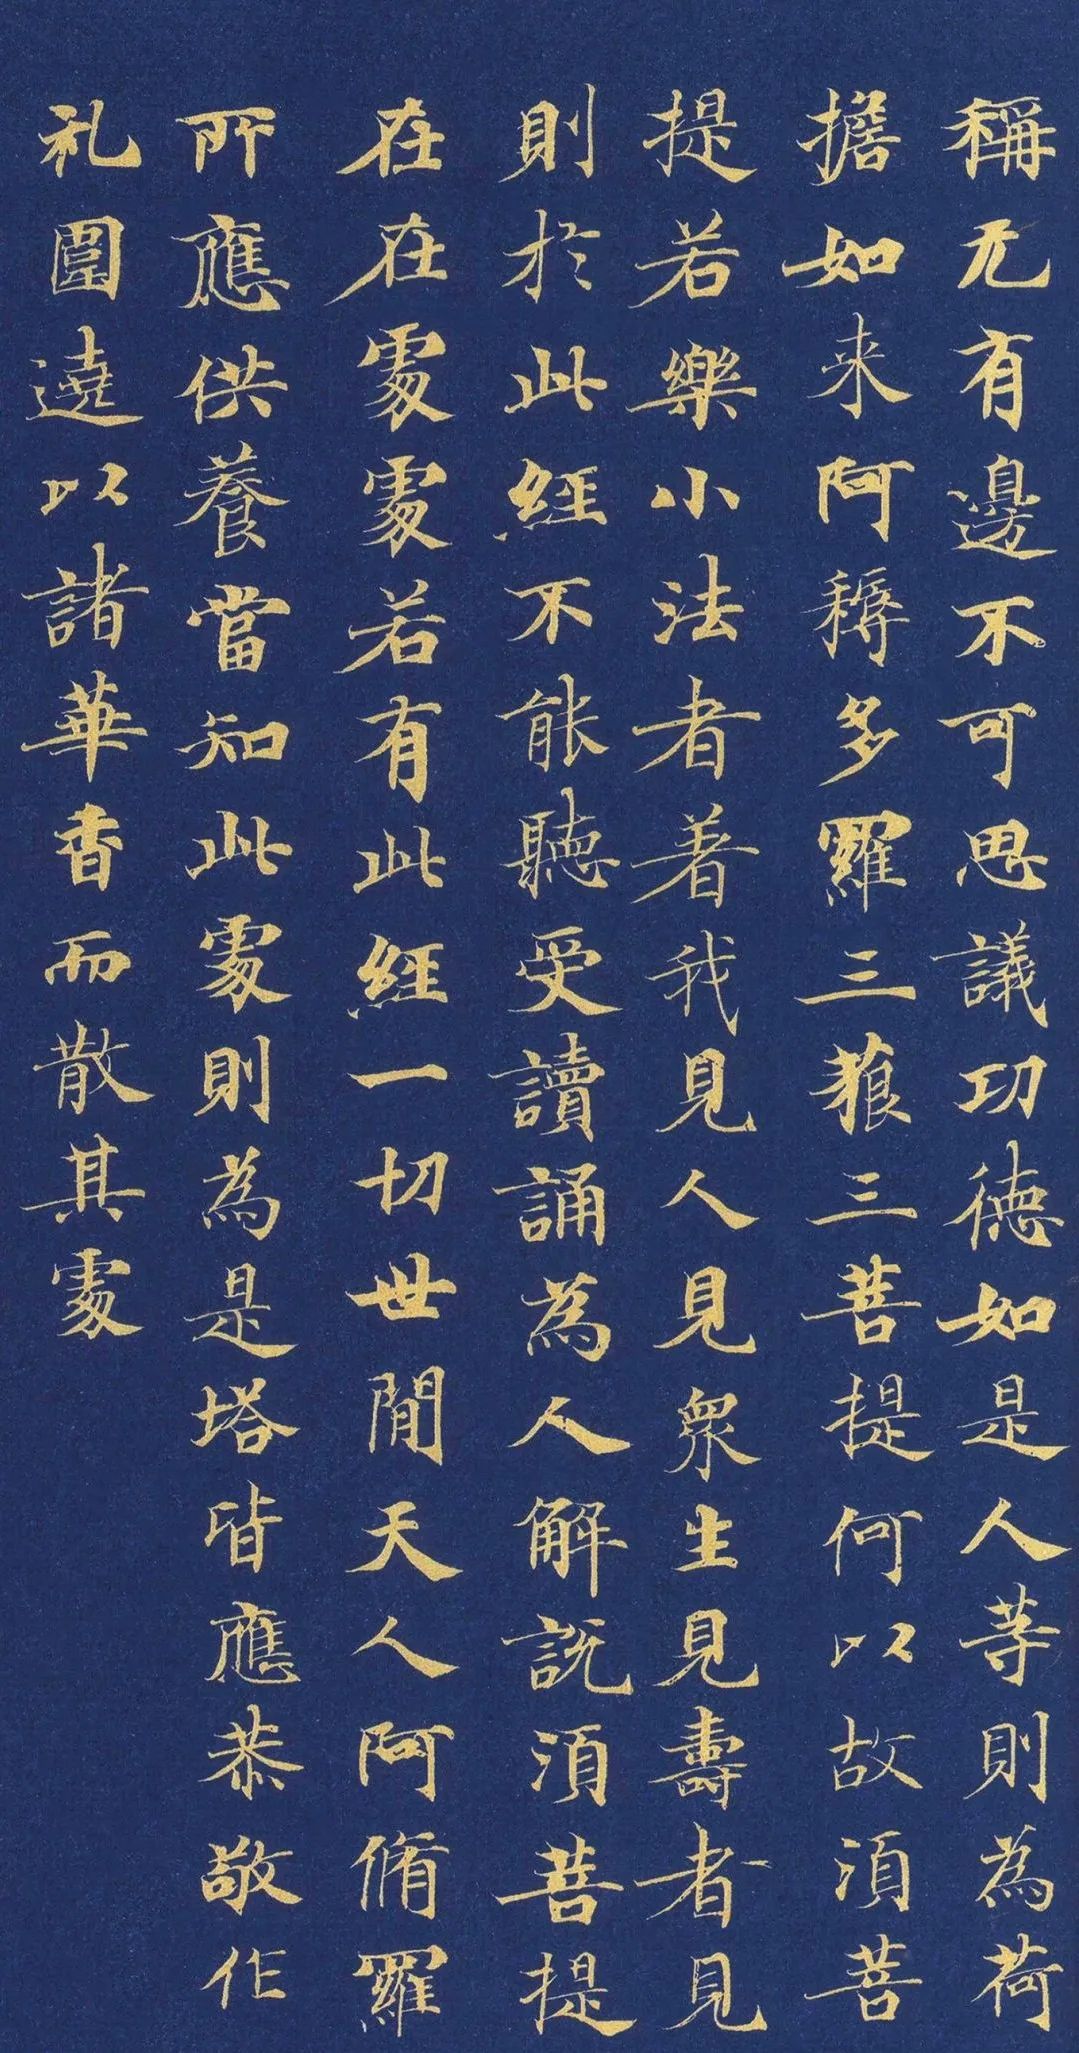 稱无有邊不可思議功德如是人等則為荷
擔如来阿耨多羅三藐三菩提何以故須菩
提若樂小法者著我見人見衆生見壽者見
則於此經不能聽受讀誦為人解説須菩提
在在處處若有此經一切世閒天人阿脩羅
所應供養當知此處則為是塔皆應恭敬作
礼圍遶以諸華香而散其處